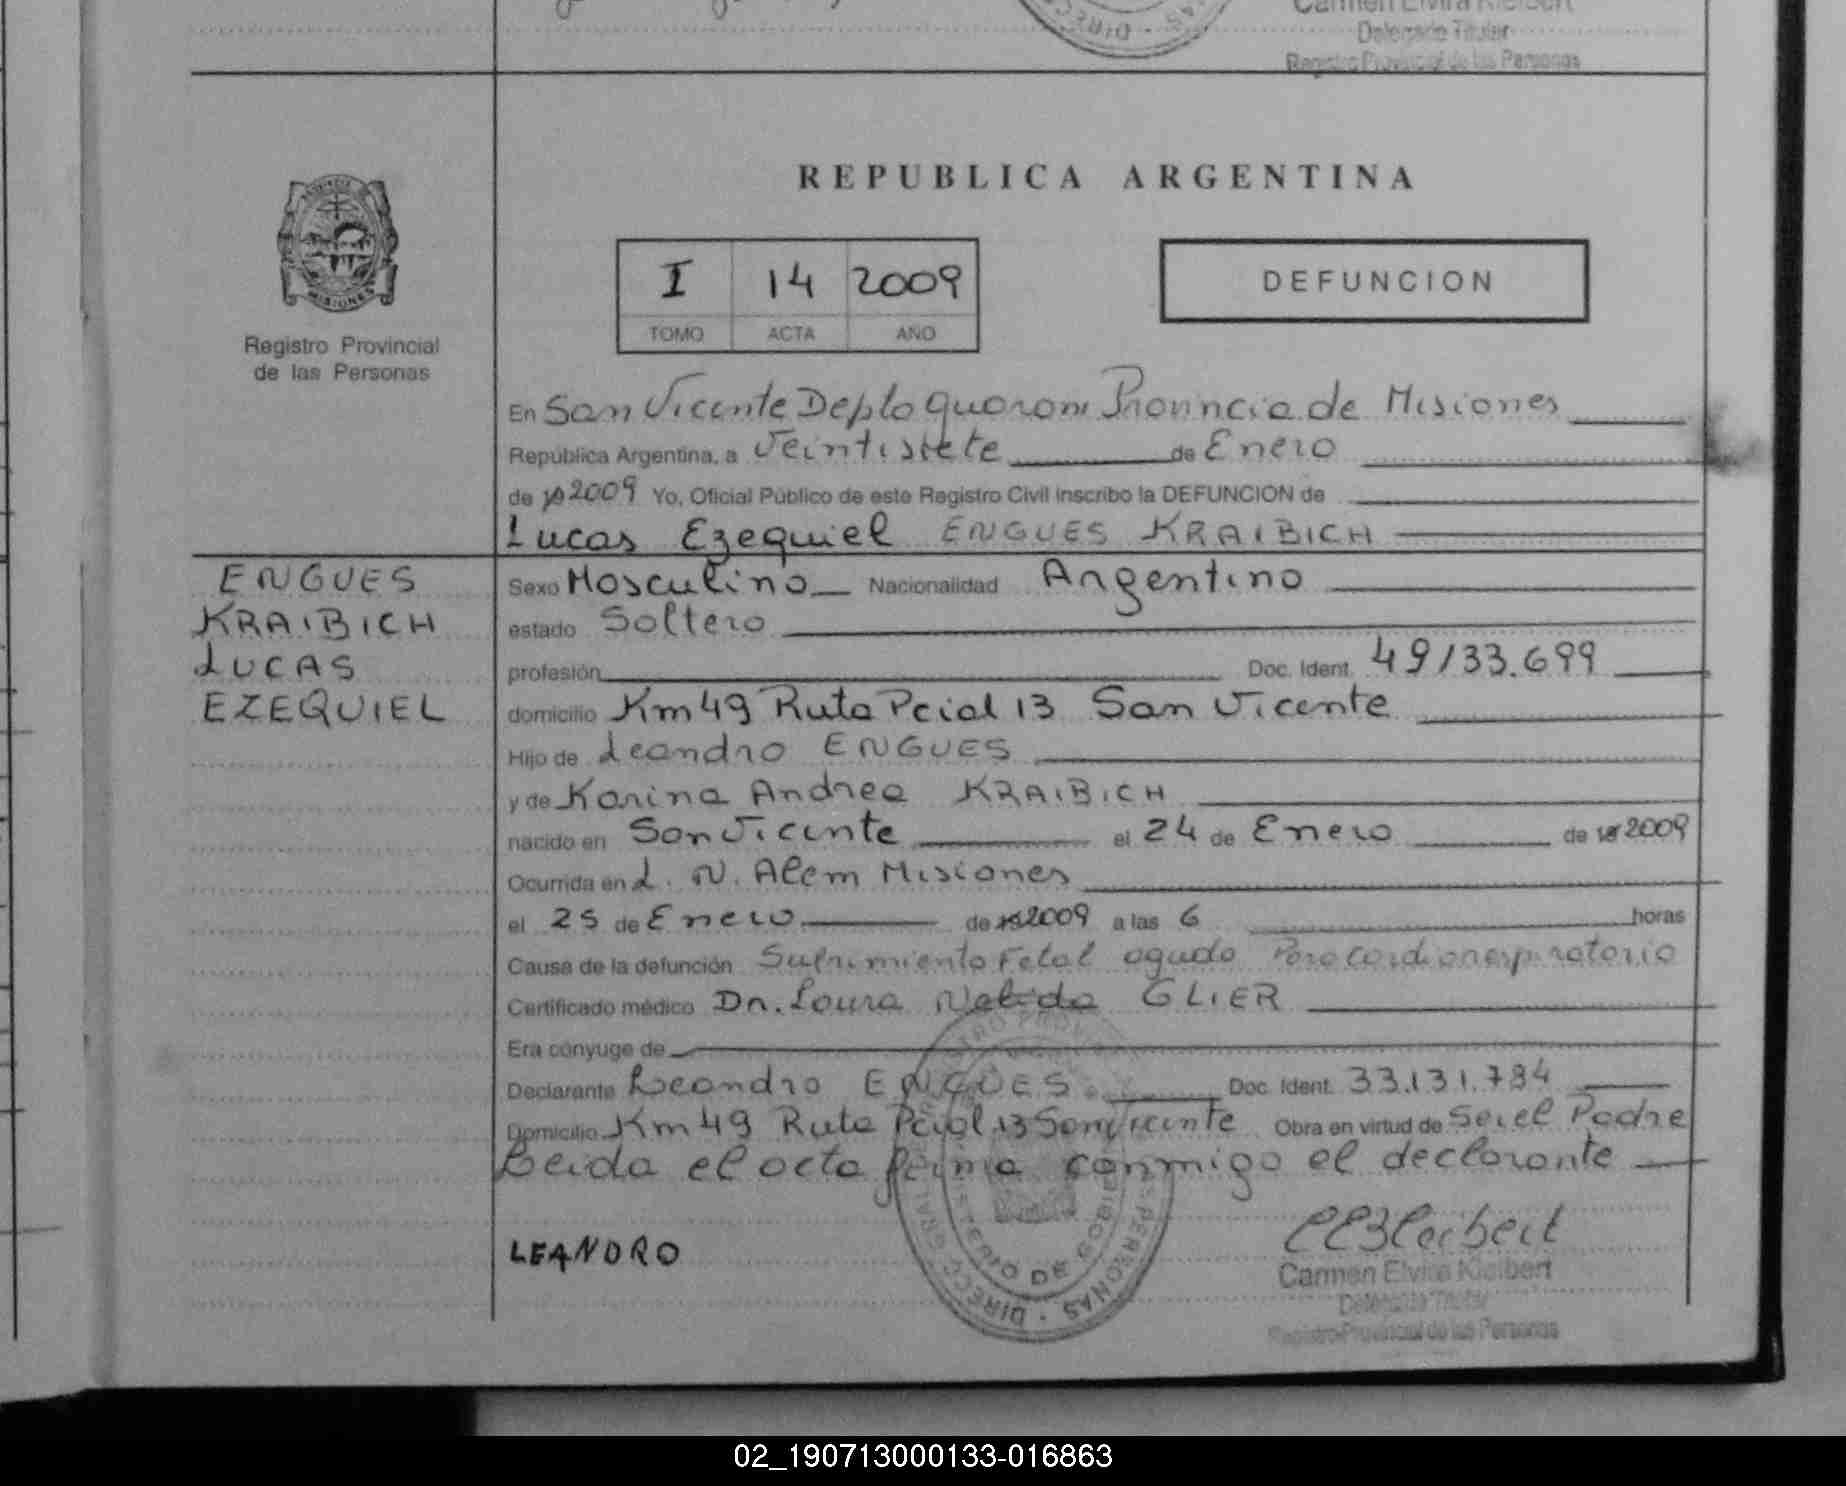 Carmen Elvira Kleibert
Delegado Titular
Registro Provincial de las Personas
DIRECC
REPUBLICA ARGENTINA
I 14 2009
TOMO ACTA AÑO
DEFUNCION
MISIONES
Registro Provincial
de las Personas
En San Vicente Depto Guarani Provincia de Misiones
República Argentina, a Veintisiete de Enero
de 19 2009 Yo, Oficial Público de este Registro Civil inscribo la DEFUNCION de
Lucas Ezequiel ENGUES KRAIBICH
ENGUES
KRAIBICH
LUCAS
EZEQUIEL
Sexo Masculino Nacionalidad Argentino
estado Soltero
profesión Doc. Ident. 49133.699
domicilio Km 49 Ruta Pcial 13 San Vicente
Hijo de Leandro ENGUES
y de Karina Andrea KRAIBICH
nacido en San Vicente el 24 de Enero de 19 2009
Ocurrida en L. N. Alem Misiones
el 25 de Enero de 19 2009 a las 6 horas
Causa de la defunción Sufrimiento Fetal agudo Parocardiorespiratorio
Certificado médico Dr. Laura GLIER
Era cónyuge de
Declarante Leandro ENGUES Doc. Ident. 33.131.784
Domicilio Km 49 Ruta Pcial 13 San Vicente Obra en virtud de Ser el Padre
Leida el acta firma conmigo el declarante
LEANDRO
Carmen Elvira Kleibert
Delegado Titular
Registro Provincial de las Personas
02_190713000133-016863